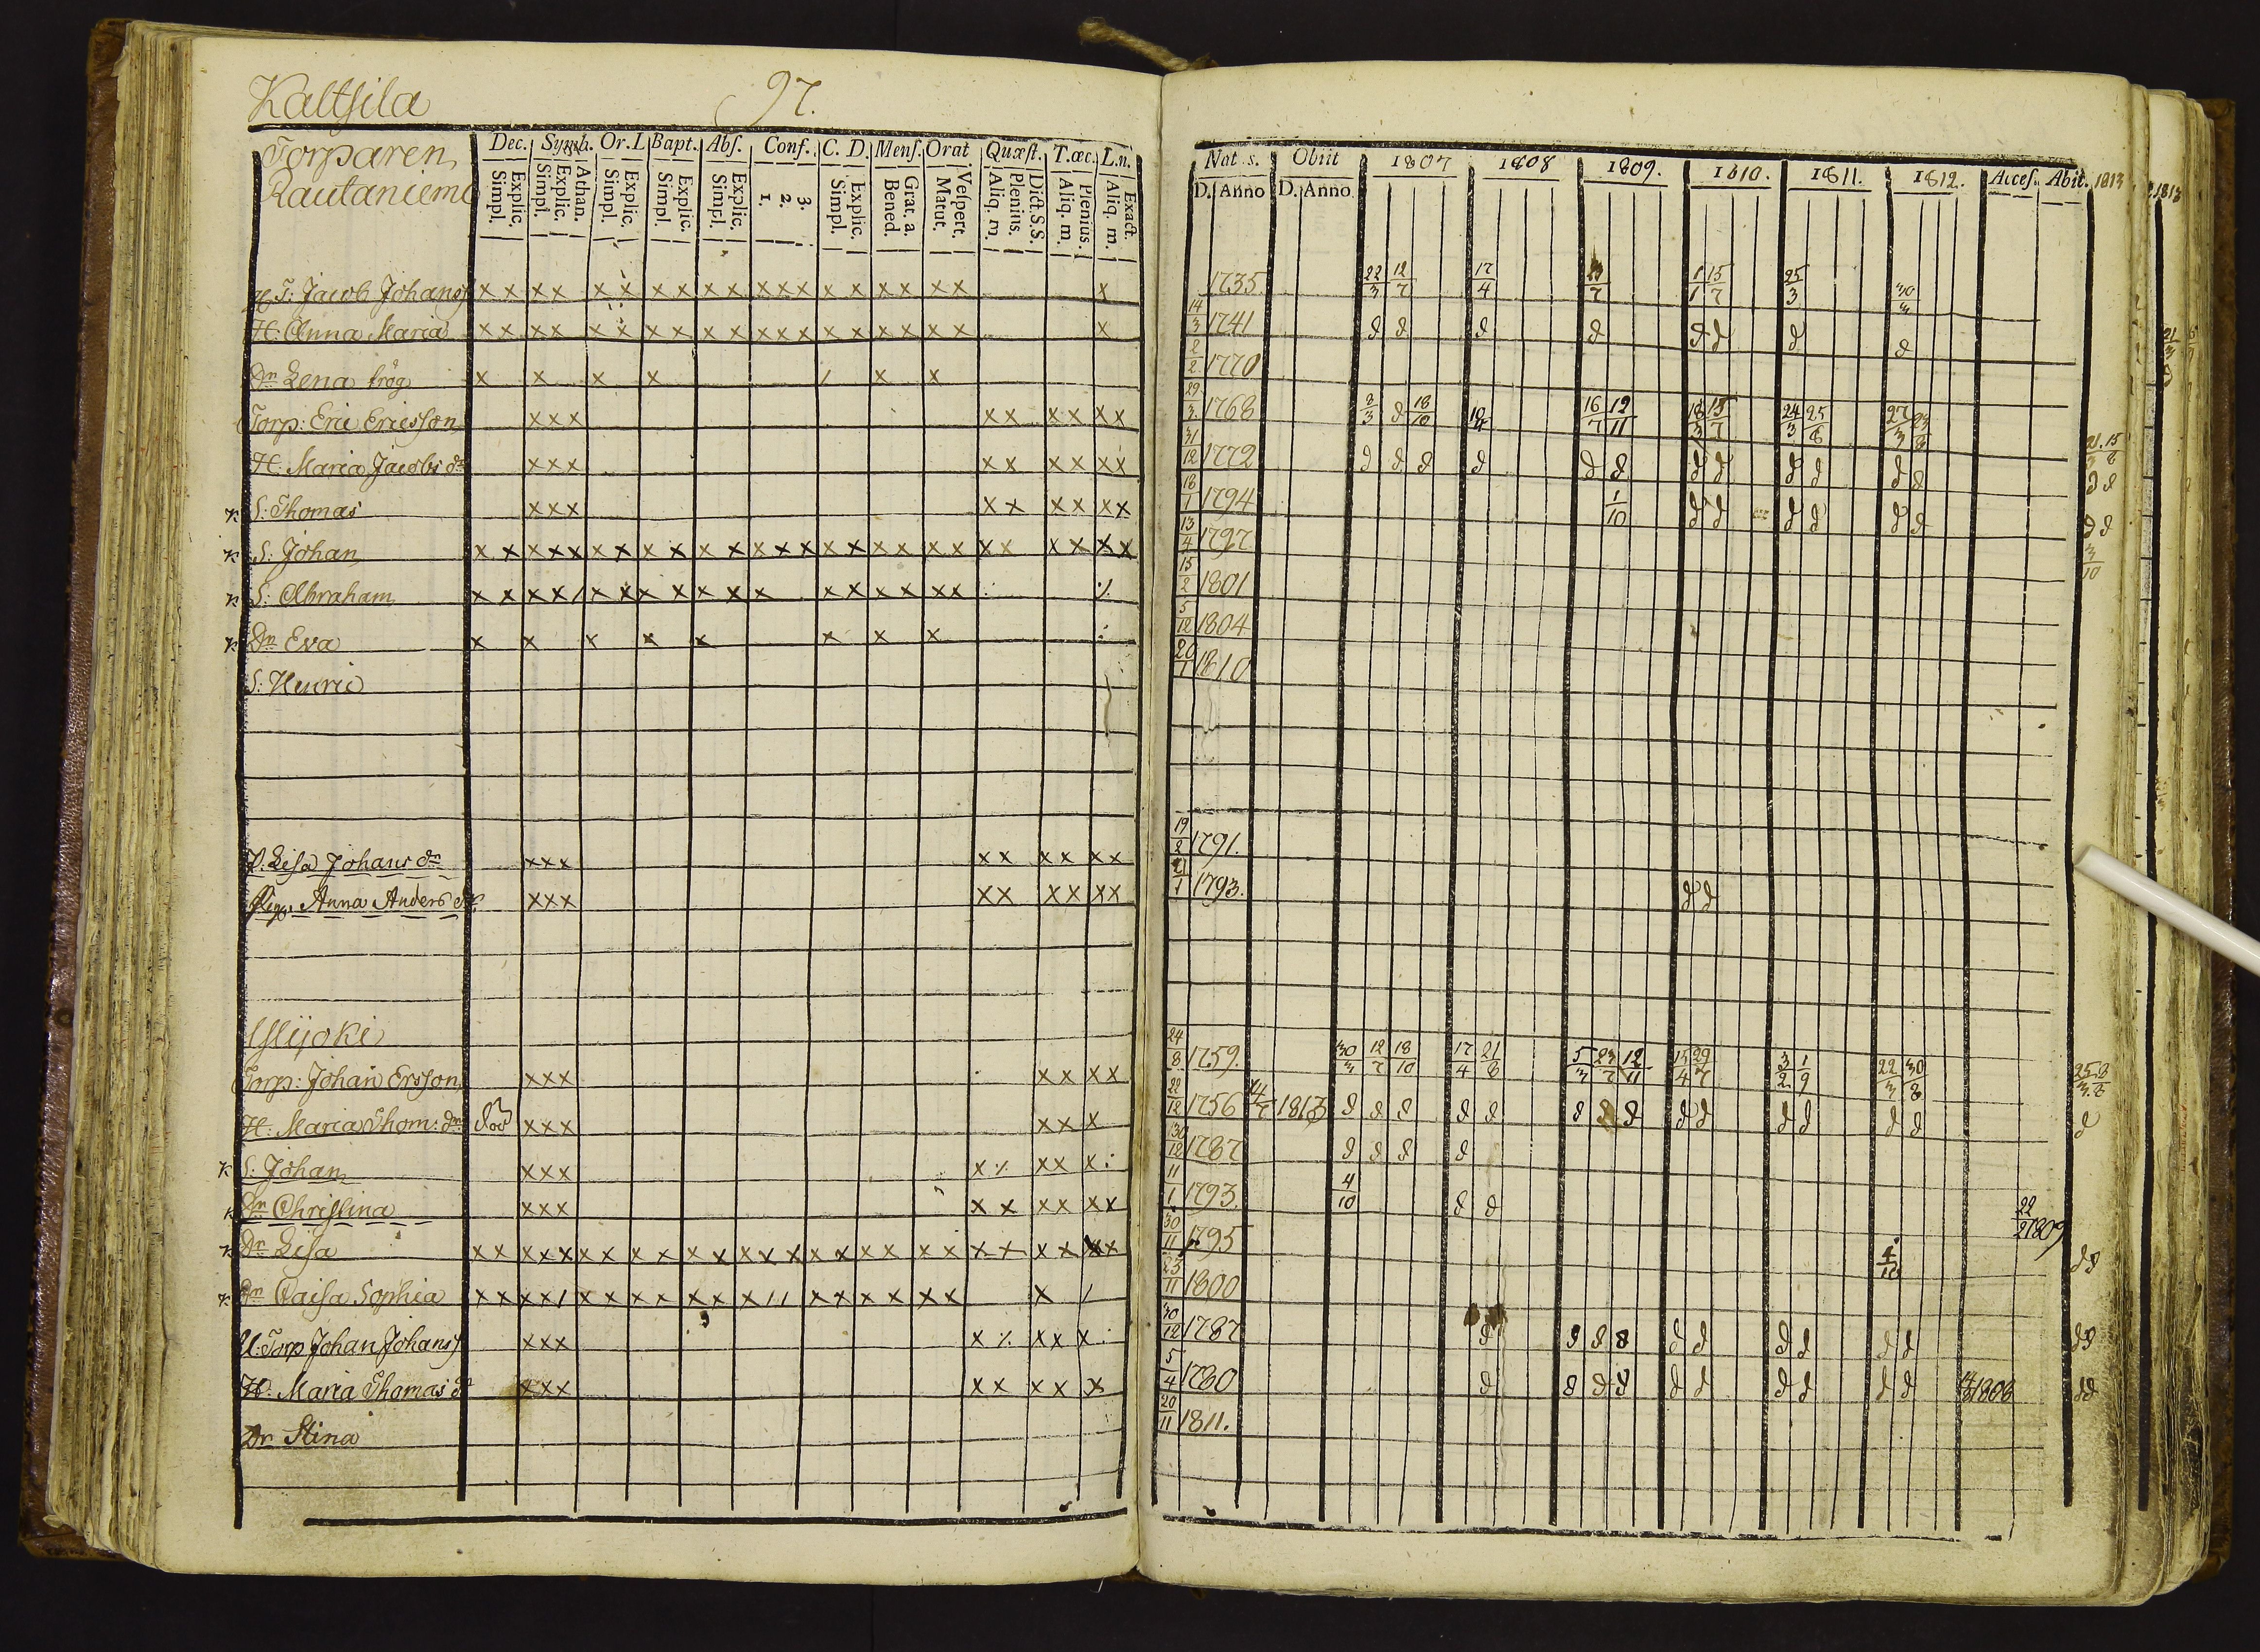 Kaltsila 97.
Torparen
Rautaniemi
Dec. Symb. Or. L Bapt. Abs. Conf. C. D. Mens. Orat Quæst. T. œc. L. n.
Explic. Simpl. Athan. Explic. Simpl. Explic. Simpl. Explic. Simpl. Explic. Simpl. 3. 2. 1. Explic. Simpl. Grat. a. Bened. Vespert. Matut. Dict. S.S. Plenius. Aliq. m. Plenius. Aliq. m. Exact. Aliq. m.
Nat. s. Obiit 1807 1808 1809. 1810. 1811. 1812. Acces. Abit. 1813 1813
D. Anno D. Anno
T: Jacob Johanss x x x x x x x x x x x x x x x x x x x x 1735. 22/3 12/7 17/4 23/7 1/1 15/7 25/3 30/3
H: Anna Maria x x x x x x x x x x x x x x x x x x x x 14/3 1741 d d d d d d d d
Dr Lena x x x x / x x 2/2 1770
Torp: Eric Ericsson x x x x x x x x x 29/3 1768 8/3 d 18/10 16/7 12/11 18/3 15/7 24/3 25/8 27/3 23/8
H: Maria Jacobs dr x x x x x x x x x 31/12 1772 d d d d d d d d d d d d 21/3 15/8
S: Thomas x x x x x x x x x 18/1 1794 1/10 d d d d d d d d
S: Johan x x x x x x x x x x x x x x x x x x x x x x x x x 13/4 1797 d d
S: Abraham x x x x / x x x x x x x x x x x x x 15/2 1801 3/10
Dr Eva x x x x x x x x 5/12 1804
S: Henric 20/1 1810
P. Lisa Johans dr x x x x x x x x x 19/2 1791.
Pig. Anna Anders dr x x x x x x x x x 21/1 1793. d d
Ylijoki
Torp: Johan Ersson x x x x x x x 24/8 1759. 30/3 12/7 18/10 17/4 21/8 5/3 23/7 12/11 15/4 29/7 3/2 1/9 22/3 30/8
H: Maria Thom: dr död x x x x x x 22/12 1756 1813 d d d d d d d d d d d d d d d
S: Johan x x x x x x x 30/12 1787 d d d d
Dr Christina x x x x x x x x x 11/1 1793. 4/10 d d 22/2 1809
Dr Lisa x x x x x x x x x x x x x x x x x x x x x x x x x 30/11 1795 4/10 d d
Dr Caisa Sophia x x x x / x x x x x x x / / x x x x x x x / 23/11 1800
U: Torp Johan Johanss x x x x x x x 30/12 1787 d d d d d d d d d d d d
H: Maria Thomas dr x x x x x x x x 5/4 1780 d d d d d d d d d d 1808 d d
Dr Stina 20/11 1811.